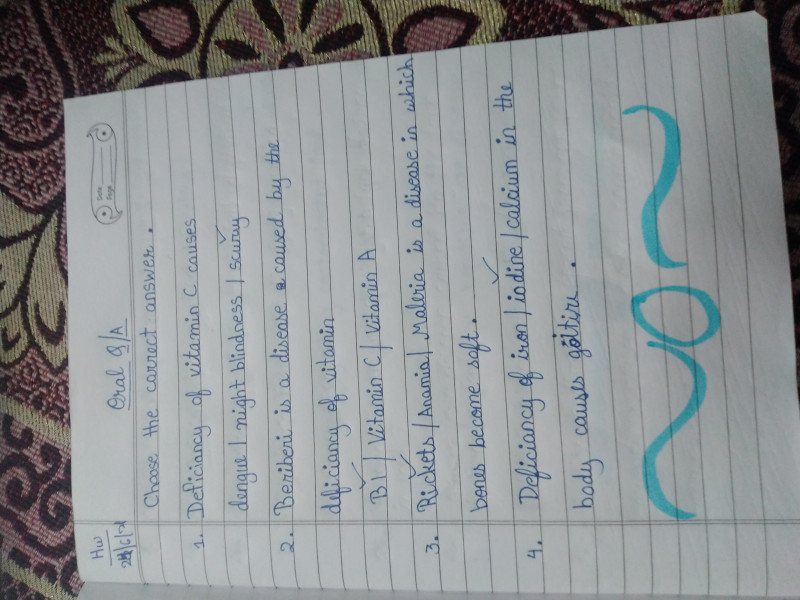 Hw
Oral Q/A
Date
Page
Choose the correct answer.
1. Deficiancy of vitamin C causes
dengue / night blindness / scurvy
2. Beriberi is a disease caused by the
dificiancy of vitamin
B1 / Vitamin C / Vitamin A
3. Rickets / Anamia / Maleria is a disease in which
bones become soft.
4. Deficiancy of iron / iodine / calcium in the
body causes goitire.